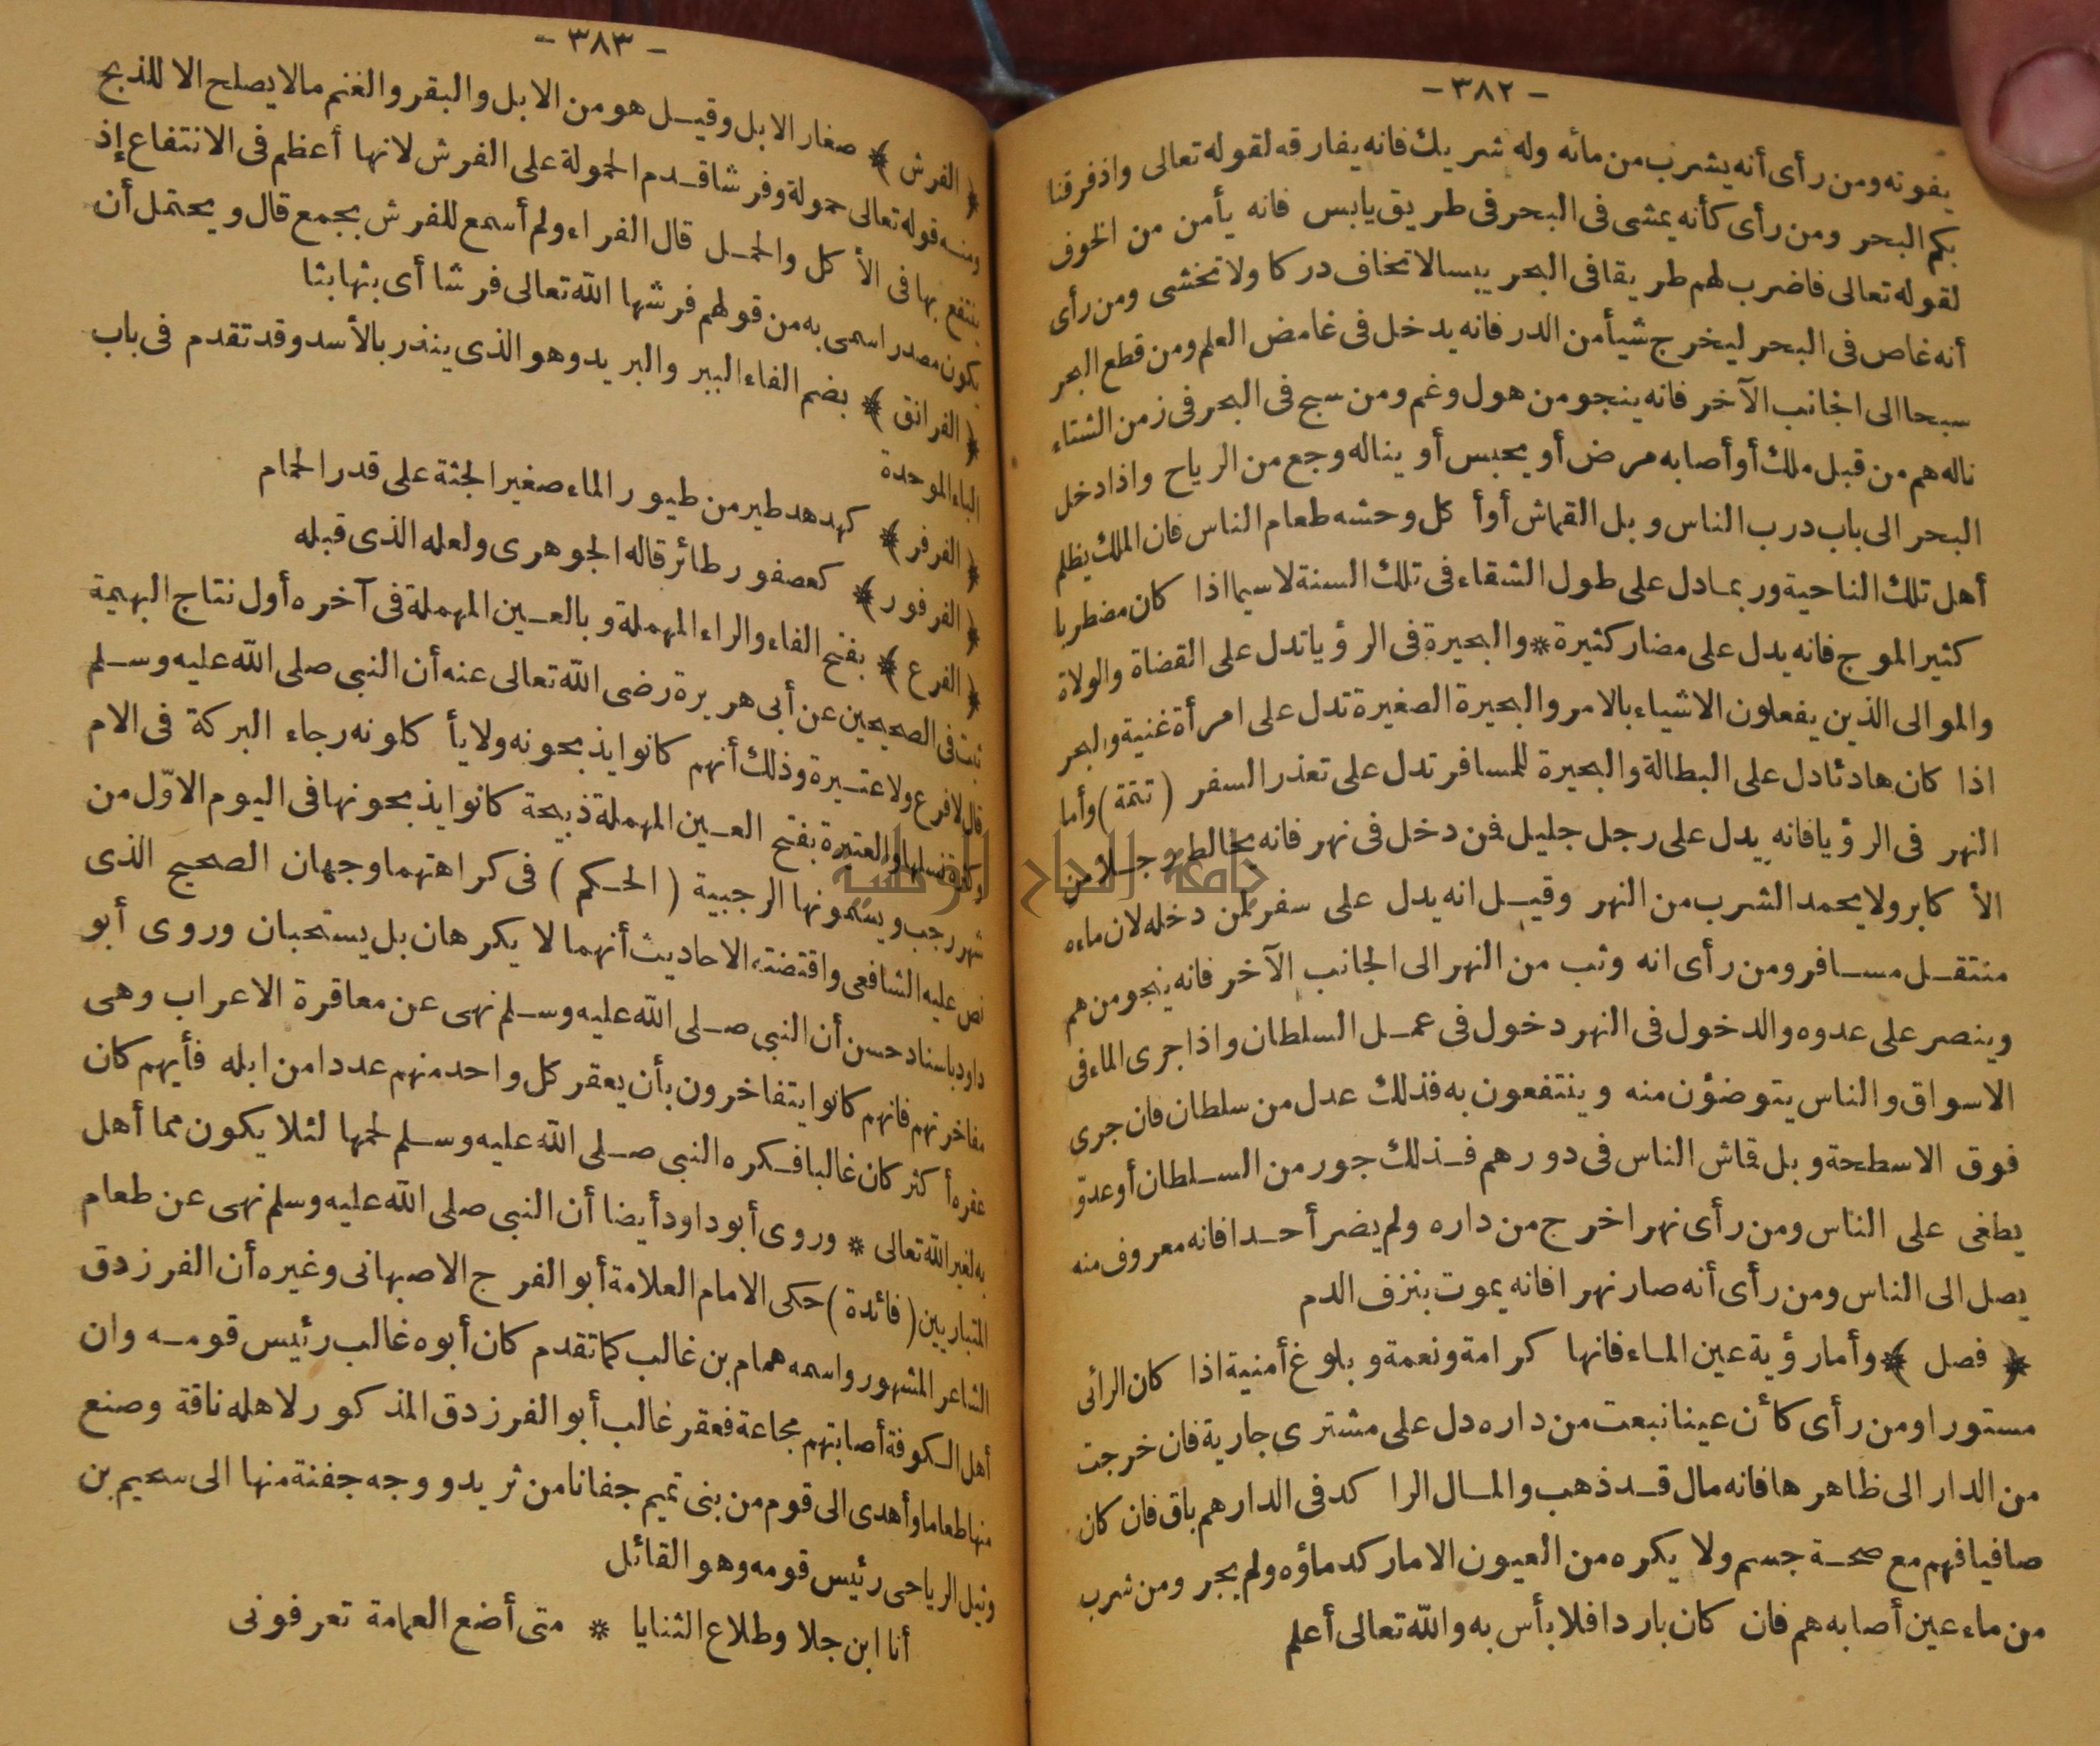 - ٣٨٢ -
يفوته ومن رأى أنه يشرب من مائه وله شريك فانه يفارقه لقوله تعالى واذ فرقنا
بكم البحر ومن رأى كأنه يمشى فى البحر فى طريق يابس فانه يأمن من الخوف
لقوله تعالى فاضرب لهم طريقا فى البحر يبسا لا تخاف دركا ولا تخشى ومن رأى
أنه غاص فى البحر ليخرج شيأ من الدر فانه يدخل فى غامض العلم ومن قطع البحر
سبحا الى الجانب الآخر فانه ينجو من هول وغم ومن سبح فى البحر فى زمن الشتاء
ناله هم من قبل ملك أو أصابه مرض أو يحبس أو يناله وجع من الرياح واذا دخل
البحر الى باب درب الناس وبل القماش أو أكل وحشه طعام الناس فان الملك يظلم
أهل تلك الناحية وربما دل على طول الشقاء فى تلك السنة لاسيما اذا كان مضطربا
كثير الموج فانه يدل على مضار كثيرة * والبحيرة فى الرؤيا تدل على القضاة والولاة
والموالى الذين يفعلون الاشياء بالامر والبحيرة الصغيرة تدل على امرأة غنية والبحر
اذا كان هادئا دل على البطالة والبحيرة للمسافر تدل على تعذر السفر (تتمة) وأما
النهر فى الرؤيا فانه يدل على رجل جليل فمن دخل فى نهر فانه يخالط رجلا من
الأكابر ولا يحمد الشرب من النهر وقيل انه يدل على سفر لمن دخله لان ماءه
منتقل مسافر ومن رأى انه وثب من النهر الى الجانب الآخر فانه ينجو من هم
وينصر على عدوه والدخول فى النهر دخول فى عمل السلطان واذا جرى الماء فى
الاسواق والناس يتوضؤن منه وينتفعون به فذلك عدل من سلطان فان جرى
فوق الاسطحة وبل قماش الناس فى دورهم فذلك جور من السلطان أو عدوّ
يطغى على الناس ومن رأى نهرا خرج من داره ولم يضر أحدا فانه معروف منه
يصل الى الناس ومن رأى أنه صار نهرا فانه يموت بنزف الدم
﴿ فصل ﴾ وأما رؤية عين الماء فانها كرامة ونعمة وبلوغ أمنية اذا كان الرائى
مستورا ومن رأى كأن عينا نبعت من داره دل على مشترى جارية فان خرجت
من الدار الى ظاهرها فانه مال قد ذهب والمال الراكد فى الدار هم باق فان كان
صافيا فهم مع صحة جسم ولا يكره من العيون الا ما ركد ماؤه ولم يجر ومن شرب
من ماء عين أصابه هم فان كان باردا فلا بأس به والله تعالى أعلم
- ٣٨٣ -
﴿ الفرش ﴾ صغار الابل وقيل هو من الابل والبقر والغنم ما لا يصلح الا للذبح
ومنه قوله تعالى حمولة وفرشا قدم الحمولة على الفرش لانها أعظم فى الانتفاع إذ
ينتفع بها فى الأكل والحمل قال الفراء ولم أسمع للفرش بجمع قال ويحتمل أن
يكون مصدرا سمى به من قولهم فرشها الله تعالى فرشا أى بثها بثا
﴿ الفرانق ﴾ بضم الفاء الببر والبريد وهو الذى ينذر بالأسد وقد تقدم فى باب
الباء الموحدة
﴿ الفرفر ﴾ كهدهد طير من طيور الماء صغير الجثة على قدر الحمام
﴿ الفرفور ﴾ كعصفور طائر قاله الجوهرى ولعله الذى قبله
﴿ الفرع ﴾ بفتح الفاء والراء المهملة وبالعين المهملة فى آخره أول نتاج البهيمة
ثبت فى الصحيحين عن أبى هريرة رضى الله تعالى عنه أن النبى صلى الله عليه وسلم
قال لا فرع ولا عتيرة وذلك أنهم كانوا يذبحونه ولا يأكلونه رجاء البركة فى الام
وكثرة نسلها والعتيرة بفتح العين المهملة ذبيحة كانوا يذبحونها فى اليوم الاوّل من
شهر رجب ويسمونها الرجبية (الحكم) فى كراهتهما وجهان الصحيح الذى
نص عليه الشافعى واقتضته الاحاديث أنهما لا يكرهان بل يستحبان وروى أبو
داود باسناد حسن أن النبى صلى الله عليه وسلم نهى عن معاقرة الاعراب وهى
مفاخرتهم فانهم كانوا يتفاخرون بأن يعقر كل واحد منهم عددا من ابله فأيهم كان
عقره أكثر كان غالبا فكره النبى صلى الله عليه وسلم لحمها لئلا يكون مما أهل
به لغير الله تعالى * وروى أبو داود أيضا أن النبى صلى الله عليه وسلم نهى عن طعام
المتباريين (فائدة) حكى الامام العلامة أبو الفرج الاصبهانى وغيره أن الفرزدق
الشاعر المشهور واسمه همام بن غالب كما تقدم كان أبوه غالب رئيس قومه وان
أهل الكوفة أصابتهم مجاعة فعقر غالب أبو الفرزدق المذكور لاهله ناقة وصنع
منها طعاما وأهدى الى قوم من بنى تميم جفانا من ثريد ووجه جفنة منها الى سحيم بن
وثيل الرياحى رئيس قومه وهو القائل
أنا ابن جلا وطلاع الثنايا * متى أضع العمامة تعرفونى
جامعة النجاح الوطنية